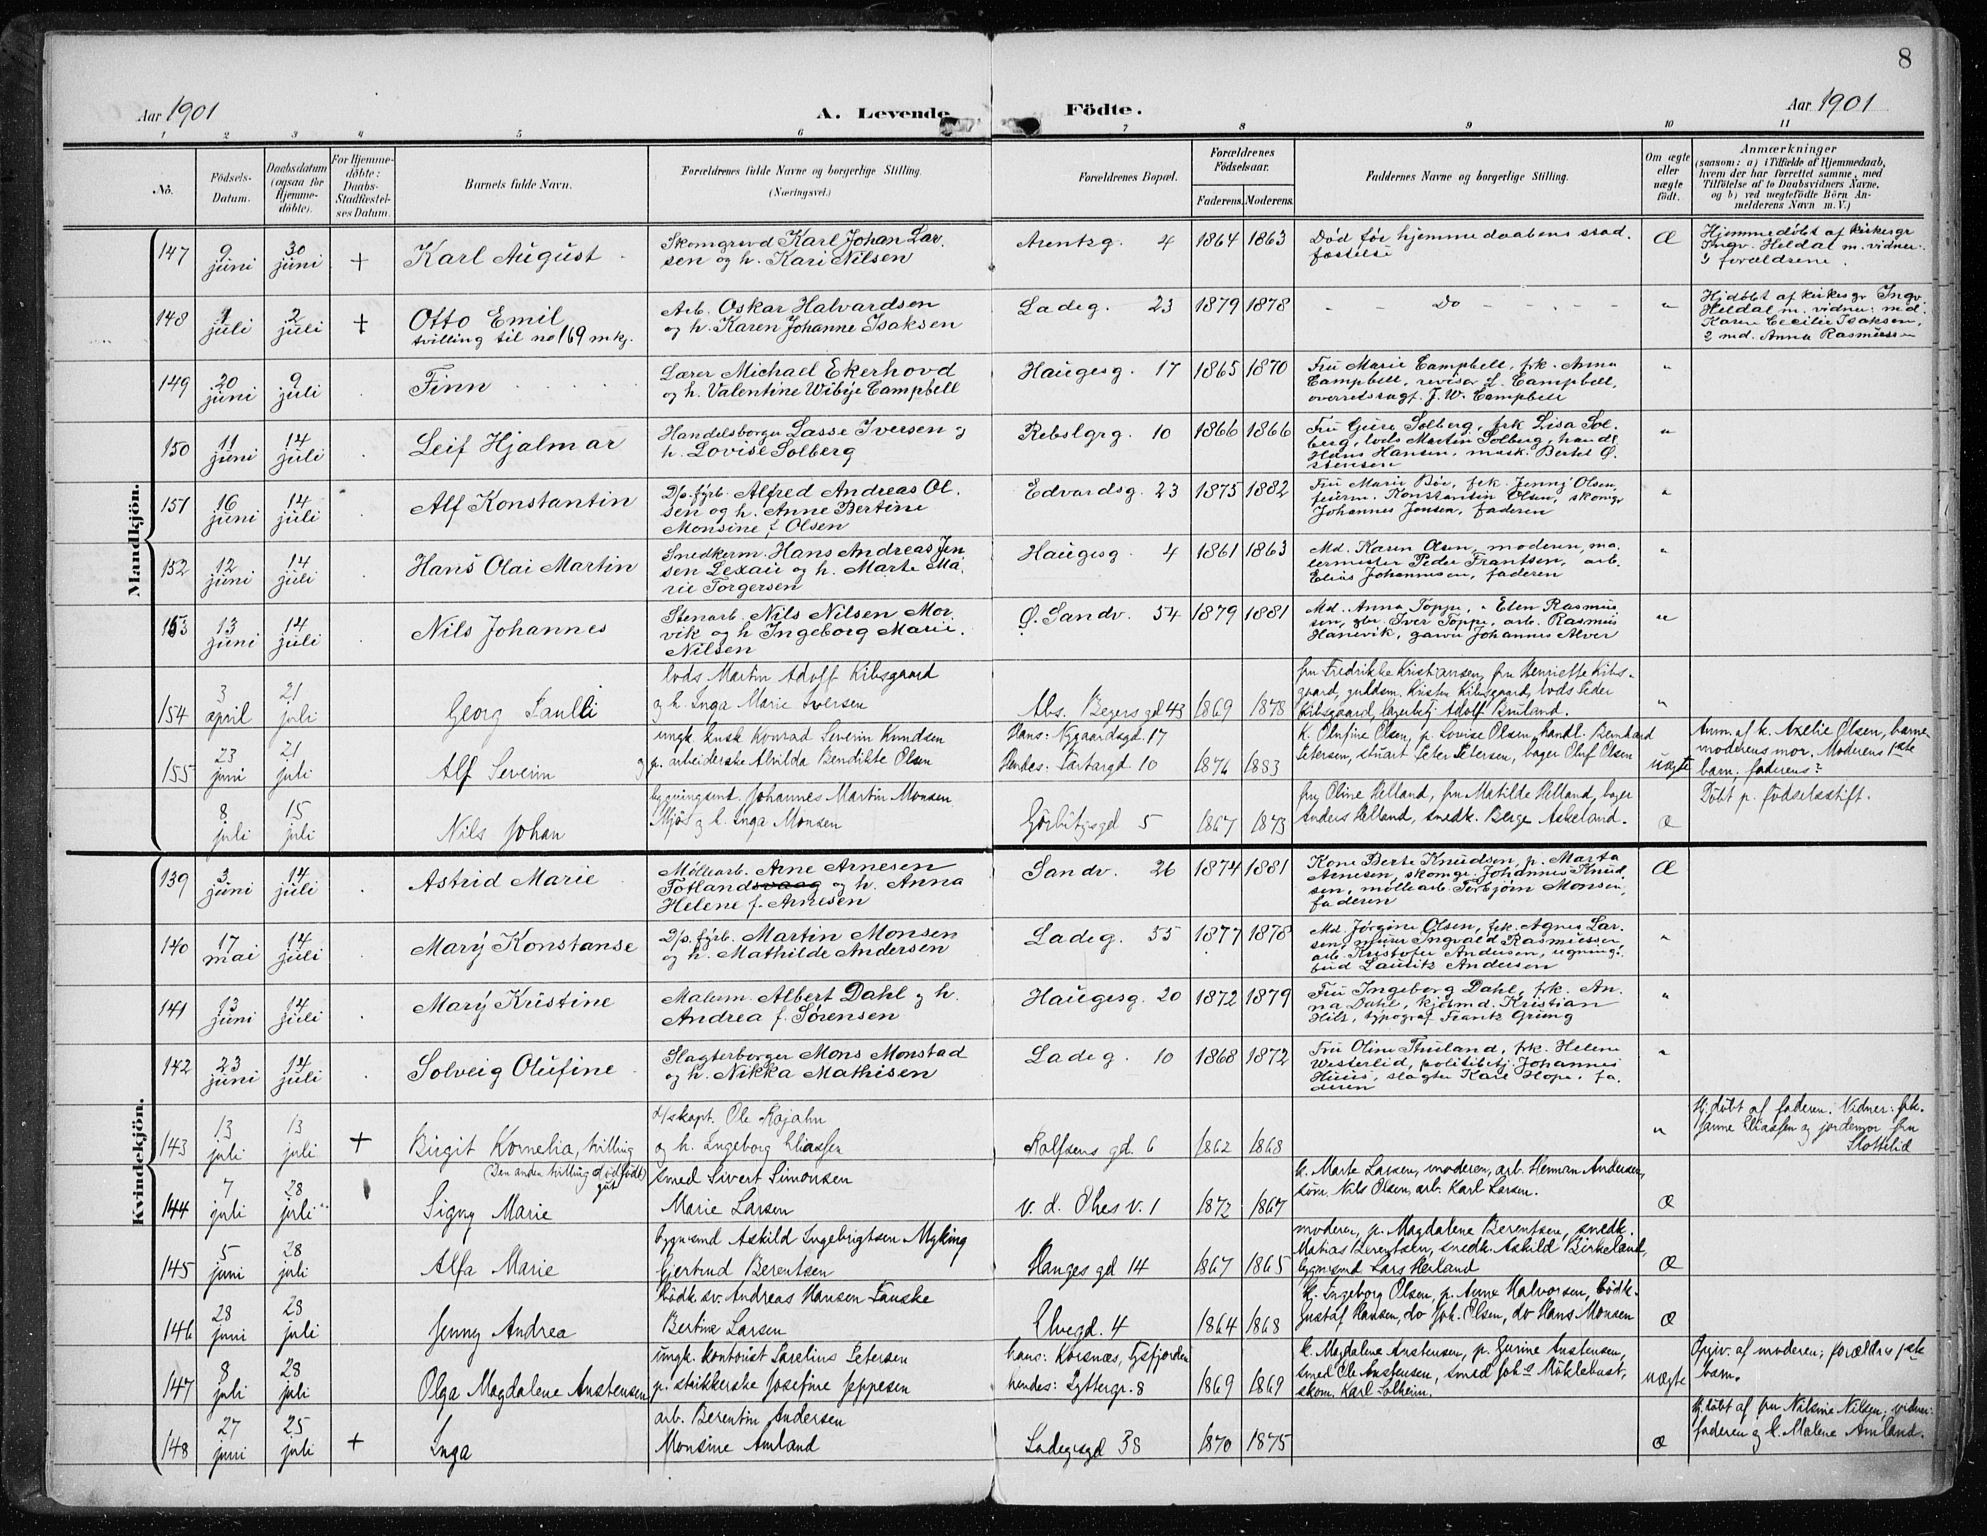 8
Aar 1901
A. Levende Födte.
Aar 1901
1 2 3 4 5 6 7 8 9 10 11
No.
Födsels-Datum.
Daabsdatum (ogsaa för Hjemme-döbte).
For Hjemme-döbte: Daabs-Stadfæstel-ses Datum.
Barnets fulde Navn.
Forældrenes fulde Navne og borgerlige Stilling.
(Næringsvei.)
Forældrenes Bopæl.
Forældrenes Födselsaar.
Faderens. Moderens.
Faddernes Navne og borgerlige Stilling.
Om ægte eller uægte födt.
Anmærkninger
(saasom: a) i Tilfælde af Hjemmedaab,
hvem der har forrettet samme, med
Tilföielse af to Daabsvidners Navne,
og b) ved uægtefödte Börn An-
melderens Navn m. V.)
Mandkjön.
147 9 juni 30 juni + Karl August
Skomgrsvd Karl Johan Lar-
sen og h. Kari Nilsen
Arentzg. 4 1864 1863
Död före hjemmedaabens stad-
fæstelse
Æ
Hjemmedöbt af kirkesgr
Ingv. Heldal m. vidner:
forældrene.
148 1 juli 2 juli + Otto Emil
tvilling til no 169 mkj.
Arb. Oskar Halvardsen
og h. Karen Johanne Isaksen
Ladeg. 23 1879 1878
- - Do - - - -
"
Hjdöbt af kirkesgr Ingv.
Heldal m. vidner: md.
Karen Cecilie Isaksen,
2 md. Anna Rasmussen
149 20 juni 9 juli Finn
Lærer Michael Ekerhovd
og h. Valentine Wibye Campbell
Haugesg. 17 1865 1870
Fru Marie Campbell, frk. Anna
Campbell, revisor L. Campbell,
overretssagf. J. W. Campbell
"
150 11 juni 14 juli Leif Hjalmar
Handelsborger Lasse Iversen og
h. Lovise Solberg
Rebslgrg. 10 1866 1866
Fru Gure Solberg, frk Lisa Sol-
berg, lods Martin Solberg, handl
Hans Hansen, mask. Bertel Ø.
stensen
"
151 16 juni 14 juli Alf Konstantin
D/s. fyrb. Alfred Andreas Ol-
sen og h. Anne Bertine
Monsine f. Olsen
Edvardsg. 23 1875 1882
Fru Marie Böe, frk. Jenny Olsen,
feierm. Konstantin Olsen, skomgr
Johannes Jensen, faderen
"
152 12 juni 14 juli Hans Olai Martin
Snedkerm. Hans Andreas Jen-
sen Lexau og h. Marte Ma-
rie Torgersen
Haugesg. 4 1861 1863
Md. Karen Olsen, moderen, ma-
lermester Peder Frantsen, arb.
Elias Johannesen, faderen
"
153 13 juni 14 juli Nils Johannes
Stenarb. Nils Nilsen Mor-
vik og h Ingeborg Marie
Nilsen
Ø. Sandv. 54 1879 1881
Md. Anna Toppe, " Elen Rasmus
sen, gbr Iver Toppe, arb. Rasmus
Hanevik, garver Johannes Alver
"
154 3 april 21 juli Georg Paulli
lods Martin Adolf Kibsgaard
og h. Inga Marie Iversen
Abs. Beyers gd 43 1869 1878
fru Fredrikke Kristiansen, fru Henriette Kibs-
gaard, guldsm. Kristen Kibsgaard, lods Peder
Kibsgaard, lagerbetj. Adolf Bruland.
"
155 23 juni 21 juli Alf Severin
ungk. kusk Konrad Severin Knudsen
og p. arbeiderske Alvilda Bendikte Olsen
Hans: Nygaardsgd. 17
Hendes: Tartargd 10 1876 1883
k. Olufine Olsen, p. Lovise Olsen, handl. Bernhard
Petersen, stuart Peter Petersen, bager Oluf Olsen
uægte
Anm. af k. Axelie Olsen, barne-
moderens mor. Moderens 1ste
barn; faderens?
8 juli 15 juli Nils Johan
bygningsmd. Johannes Martin Monsen
Mjös og h. Inga Monsen
Görbitzgd 5 1867 1873
fru Oline Helland, fru Matilde Helland, bager
Anders Helland, snedk. Berge Askeland.
Æ
Döbt p. födselsstift.
Kvindekjön.
139 3 juni 14 juli Astrid Marie
Möllearb. Arne Arnesen
Totlandsvaag og h. Anna
Helene f. Arnesen
Sandv. 26 1874 1881
Kone Berte Knudsen, p. Marta
Arnesen, skomgr. Johannes Knud-
sen, möllearb Torbjörn Monsen,
faderen
Æ
140 17 mai 14 juli Mary Konstanse
D/s. fyrb. Martin Monsen
og h. Mathilde Andersen
Ladeg. 55 1877 1878
Md. Jörgine Olsen, frk. Agnes Lar-
sen, murer Ingvald Rasmussen,
arb. Kristofer Andersen, bygnings-
bud Lauritz Andersen
"
141 13 juni 14 juli Mary Kristine
Malerm. Albert Dahl og h.
Andrea f. Sørensen
Haugesg. 20 1872 1879
Fru Ingeborg Dahl, frk. An-
na Dahl, kjösmd. Kristian
Hils, typograf Frantz Grung
"
142 23 juni 14 juli Solveig Olufine
Slagterborger Mons Monstad
og h. Nikka Mathisen
Ladeg. 10 1868 1872
Fru Oline Thuland, frk. Helene
Westerlid, politibetj. Johannes
Huus, slagter Karl Hope, fa-
deren
"
143 13 juli 13 juli + Birgit Kornelia, tvilling
(Den anden tvilling dödfödt gut)
d/skapt. Ole Rajahn
og h. Ingeborg Eliassen
Rolfsens gd. 6 1862 1868
"
Hj.döbt af faderen. Vidner: frk.
Janne Eliassen og jordemor fru
Slottelid
144 7 juli 28 juli Signy Marie
smed Sivert Simonsen
Marie Larsen
v. d. Ohes v. 1 1872 1867
k. Marte Larsen, moderen, arb. Herman Andersen,
söm. Nils Olsen, arb. Karl Larsen.
Æ
145 5 juni 28 juli Alfa Marie
bygnsmd Askild Ingebrigtsen Myking
Gjertrud Berentsen
Hauges gd 14 1867 1865
moderen, p. Magdalene Berentsen, snedk.
Matias Berentsen, snedk. Askild Birkeland,
bygnsmd Lars Heiland
Æ
146 28 juni 28 juli Jenny Andrea
bödk. sv. Andreas Hansen Fauske
Bertine Larsen
Elvegd. 4 1864 1868
k. Ingeborg Olsen, p. Anne Halvorsen, bödk.
Gustaf Hansen, do Joh. Olsen, do Hans Monsen
Æ
147 8 juli 28 juli Olga Magdalene Anstensen
ungk. kontorist Karelius Petersen
p. strikkerske Josefine Jeppesen
hans: Korsnæs, Tysfjorden
hendes: Lyttergr. 8 1869 1869
k. Magdalene Anstensen, p. Gurine Anstensen,
smed Ole Anstensen, smed Johs Myklebust,
skom. Karl Solheim.
uægte
Opgiv. af moderen; forældres 1ste
barn.
148 27 juni 25 juli + Inga
arb. Berentin Andersen
Monsine Amland
Ladegsgd 38 1870 1875
Æ
Hj.döbt af fru Nilsine Nilsen; vidner:
faderen og k. Malene Amland.